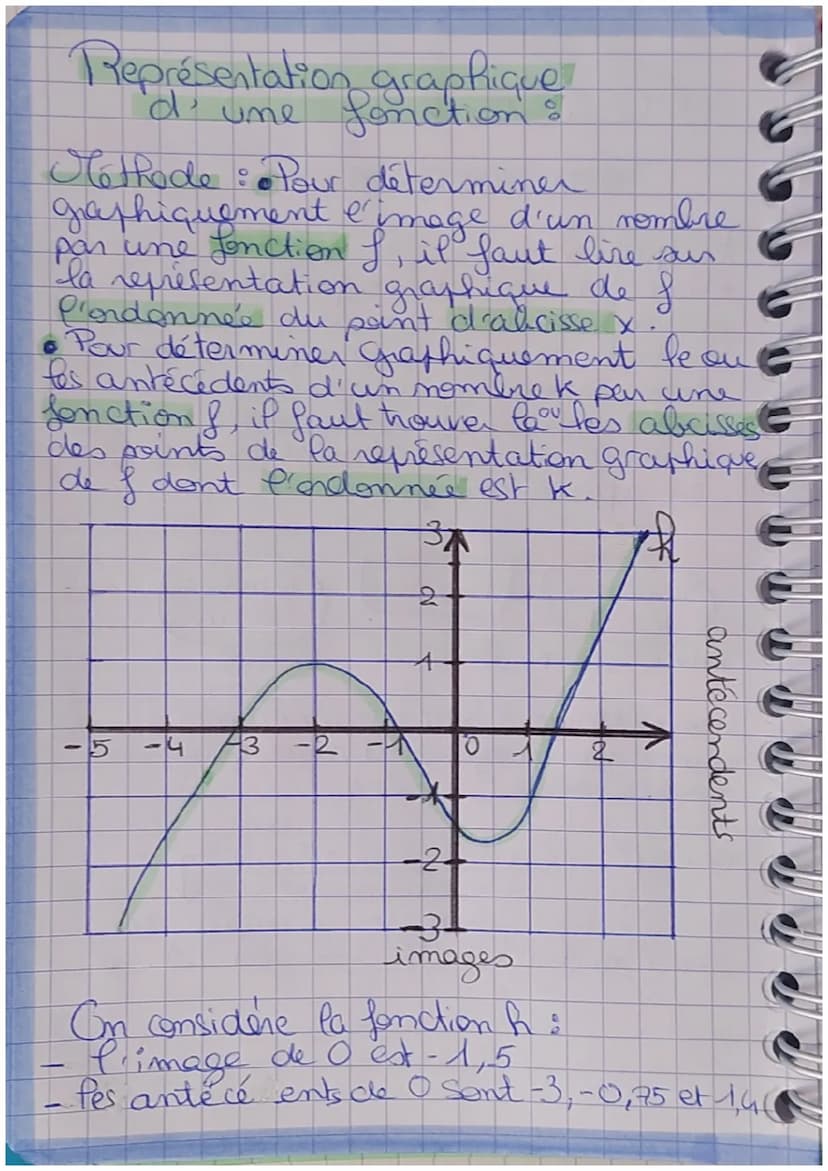 Représentation graphique
d'une fonction :
Méthode : • Pour déterminer
graphiquement l'image d'un nombre
par une fonction f, il faut lire sur
la représentation graphique de f
l'ordonnée du point d'abcisse x.
• Pour déterminer graphiquement le ou
les antécédents d'un nombre k par une
fonction f, il faut trouver la ou les abcisses
des points de la représentation graphique
de f dont l'ordonnée est k.
3 h
2
1
-5 -4 -3 -2 -1 0 1 2
-1
-2
-3
antécendents
images
On considère la fonction h :
- l'image de 0 est -1,5
- les antécé ents de 0 sont -3, -0,75 et 1,4